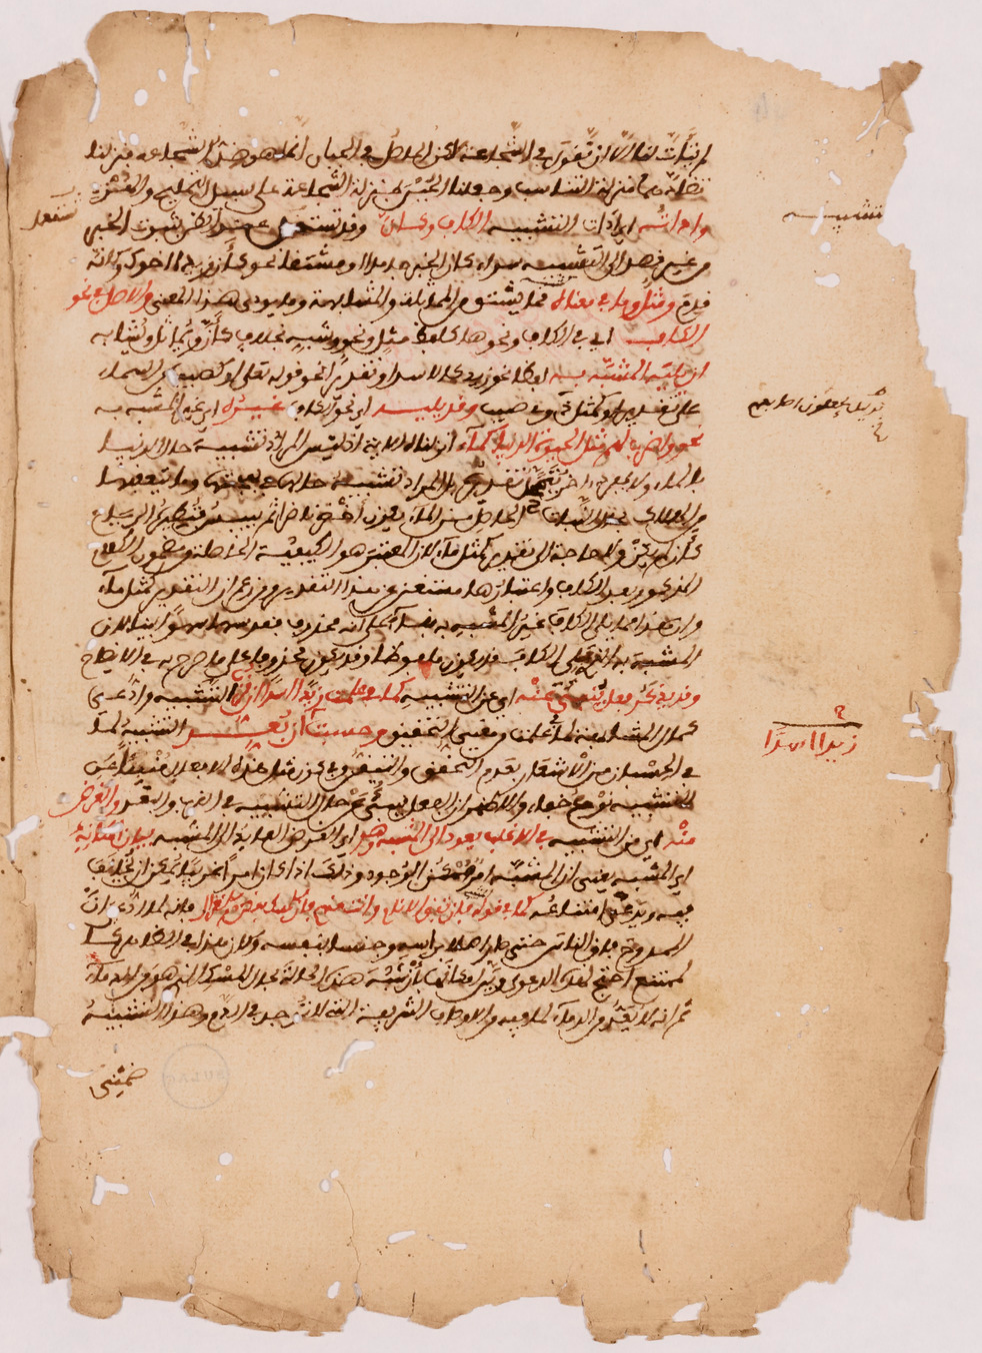 لانا اذا قلنا لا نقول في الشجاعة لاكن الحاصل في الجبان انما هو ضد الشجاعة فنزلنا
تضادهما منزلة التناسب وجعلنا الجبن بمنزلة الشجاعة على سبيل التمليح والهزء
واداته اي ادات التشبيه الكاف وكان وقد تستعمل عند الظن بثبوت الخبر
من غير قصد الى التشبيه سواء كان الخبر جامدا او مشتقا نحو كان زيدا اخوك وكانه
قدم ومثل وما في معناه مما يشتق من المماثلة والمشابهة وما يودي هذا المعنى والاصل في نحو
الكاف اي في الكاف ونحوها كلفظ مثل ونحو وشبه بخلاف كان وتماثل وتشابه
ان يليه المشبه به لفظا نحو زيد كالاسد او تقديرا نحو قوله تعلى او كصيب من السماء
على تقدير او كمثل ذوي صيب وقد يليه اي نحو الكاف غيره اي غير المشبه به
نحو واضرب لهم مثل الحيوة الدنيا كماء انزلناه الاية اذ ليس المراد تشبيه حال الدنيا
بالماء ولا بمفرد اخر يتمحل تقديره بل المراد تشبيه حالها في بهجتها وما يتعقبها
من الهلاك بحال النبات الحاصل من الماء يكون اخضر ناضرا ثم ييبس فتطيره الرياح
كان لم يكن ولا حاجة الى تقدير كمثل ماء لان المعتبر هو الكيفية الحاصلة من مضمون الكلام
المذكور بعد الكاف واعتبارها مستغن عن هذا التقدير ومن زعم ان التقدير كمثل ماء
وان هذا مما يلي الكاف غير المشبه به بناء على انه محذوف فقد سها سهوا بينا لان
المشبه به الذي يلي الكاف قد يكون ملفوظا وقد يكون محذوفا على ما صرح به في الايضاح
وقد يذكر فعل ينبئ عنه اي عن التشبيه كما في علمت زيدا اسدا ان قرب التشبيه وادعى
كمال المشابهة لما في علمت من معنى التحقيق وحسبت ان بعد التشبيه لما
في الحسبان من الاشعار بعدم التحقق والتيقن وفي كون مثل هذه الافعال منبئا عن
التشبيه نوع خفاء والاظهر ان الفعل ينبئ عن حال التشبيه في القرب والبعد والغرض
منه اي من التشبيه في الاغلب يعود الى المشبه وهو اي الغرض العايد الى المشبه بيان امكانه
اي المشبه يعني ان المشبه امر ممكن الوجود وذلك اذا كان امرا غريبا يمكن ان يخالف
فيه ويدعى امتناعه كما في قوله فان تفق الانام وانت منهم فان المسك بعض دم الغزال فانه لما ادعى ان
الممدوح فاق الناس حتى صار اصلا براسه وجنسا بنفسه وكان هذا في الظاهر
كالممتنع احتج لهذه الدعوى وبين امكانها بان شبه هذه الحالة بحال المسك الذي هو من الدماء
ثم انه لا يعد من الدماء لما فيه من الاوصاف الشريفة التي لا توجد في الدم وهذا التشبيه
ضمني
تشبيه
زيدا اسدا